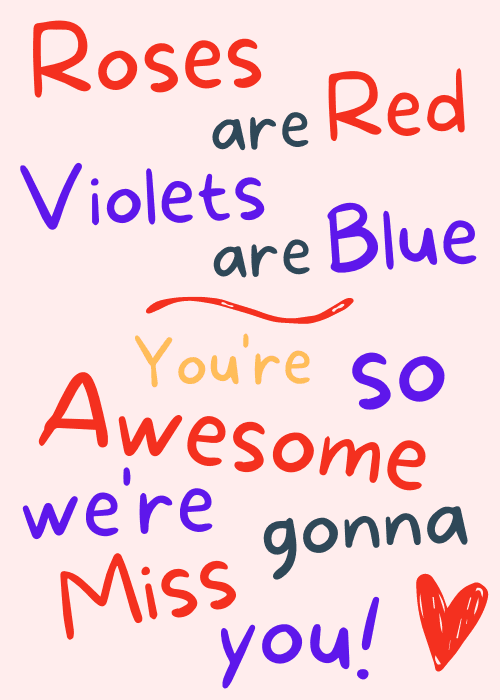 Roses
are Red
Violets
are Blue
You're so
Awesome
we're gonna
Miss
you!